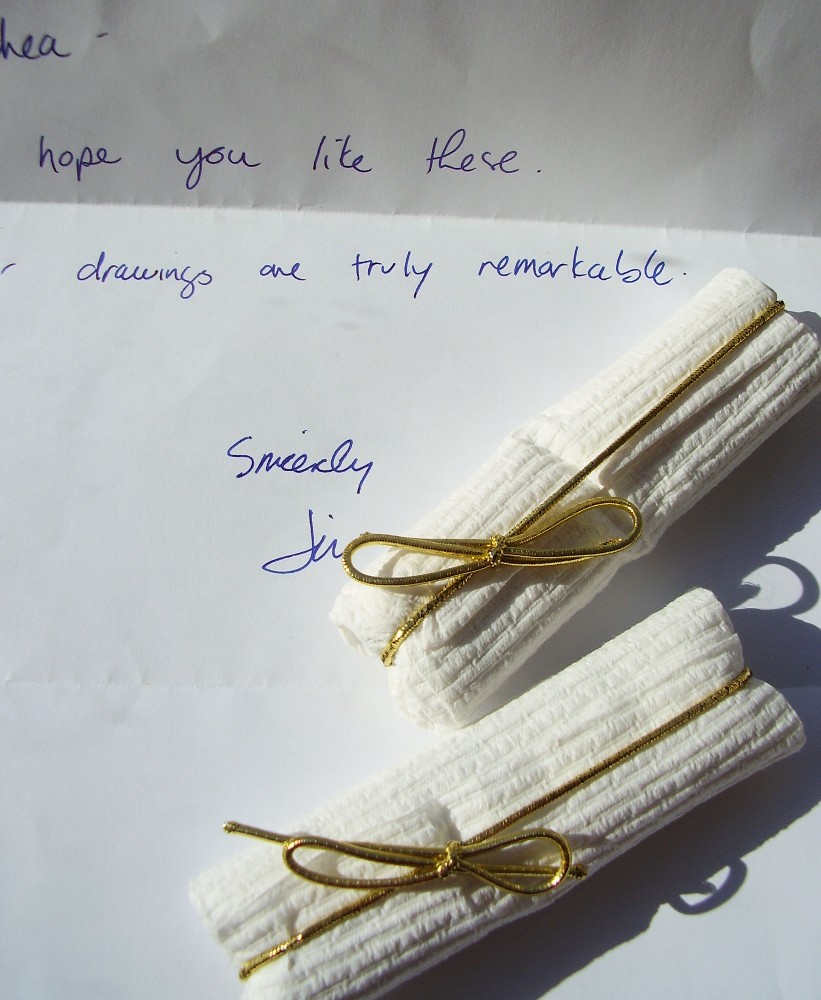 hea -
hope you like these.
r drawings are truly remarkable.
Sincerely